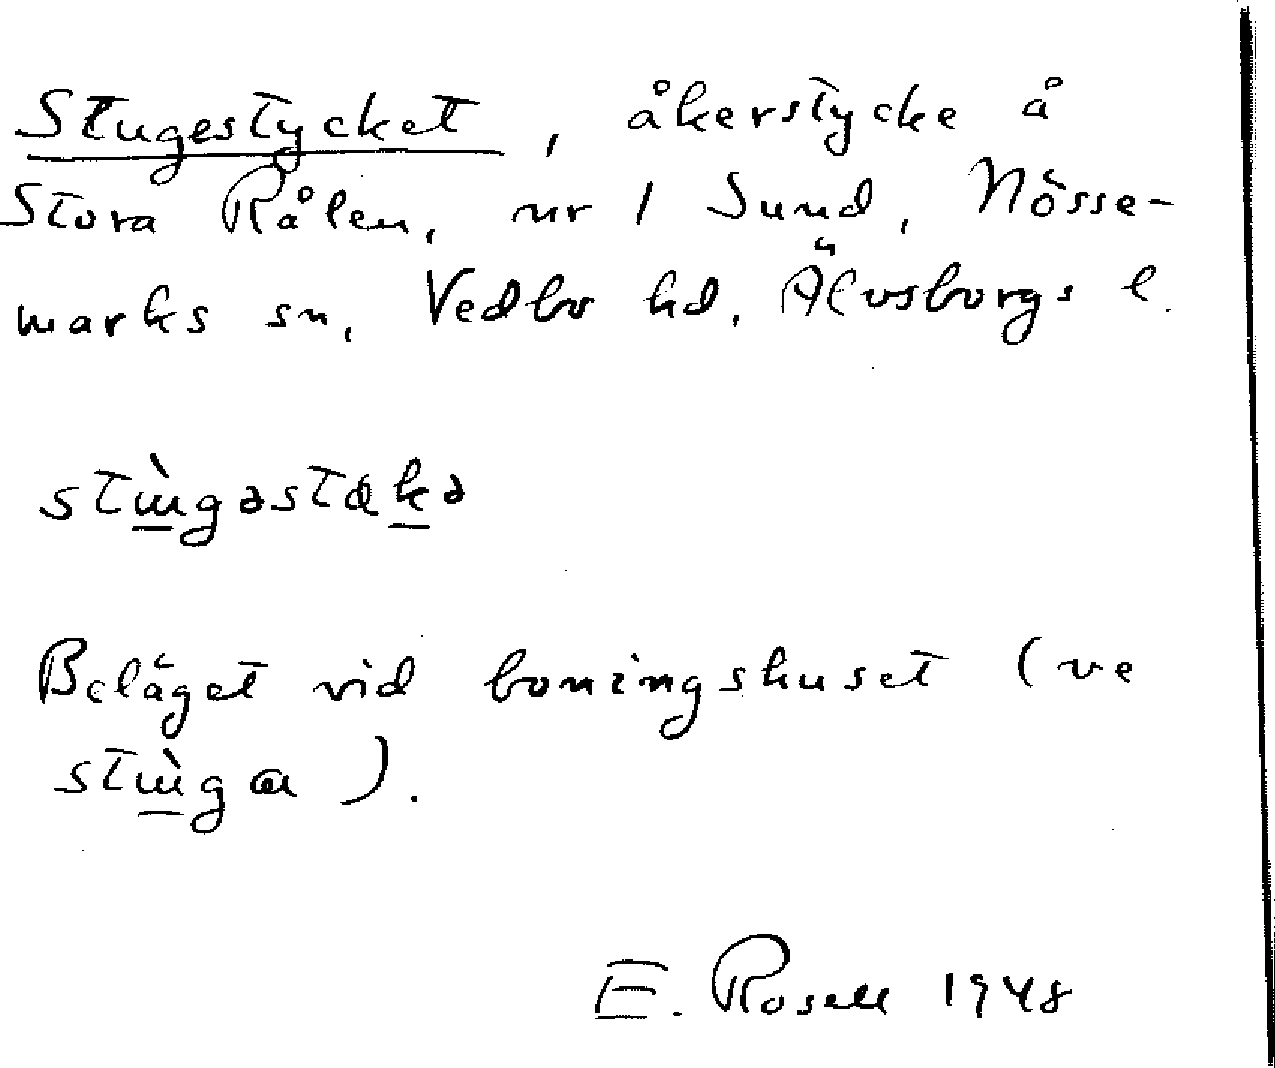 Stugestycket, åkerstycke å
Stora Rålen, nr 1 Sund, Nösse-
marks sn, Vedbo hd, Älvsborgs l.
stɯ̀gəstækə
Beläget vid boningshuset (ve
stɯ̀gɑ).
E. Rosell 1948